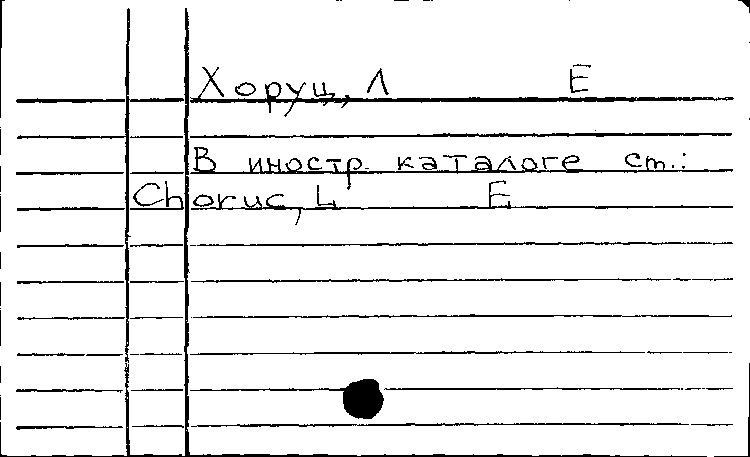 Хоруц, Л Е
В иностр. каталоге см.:
Choruc, L E